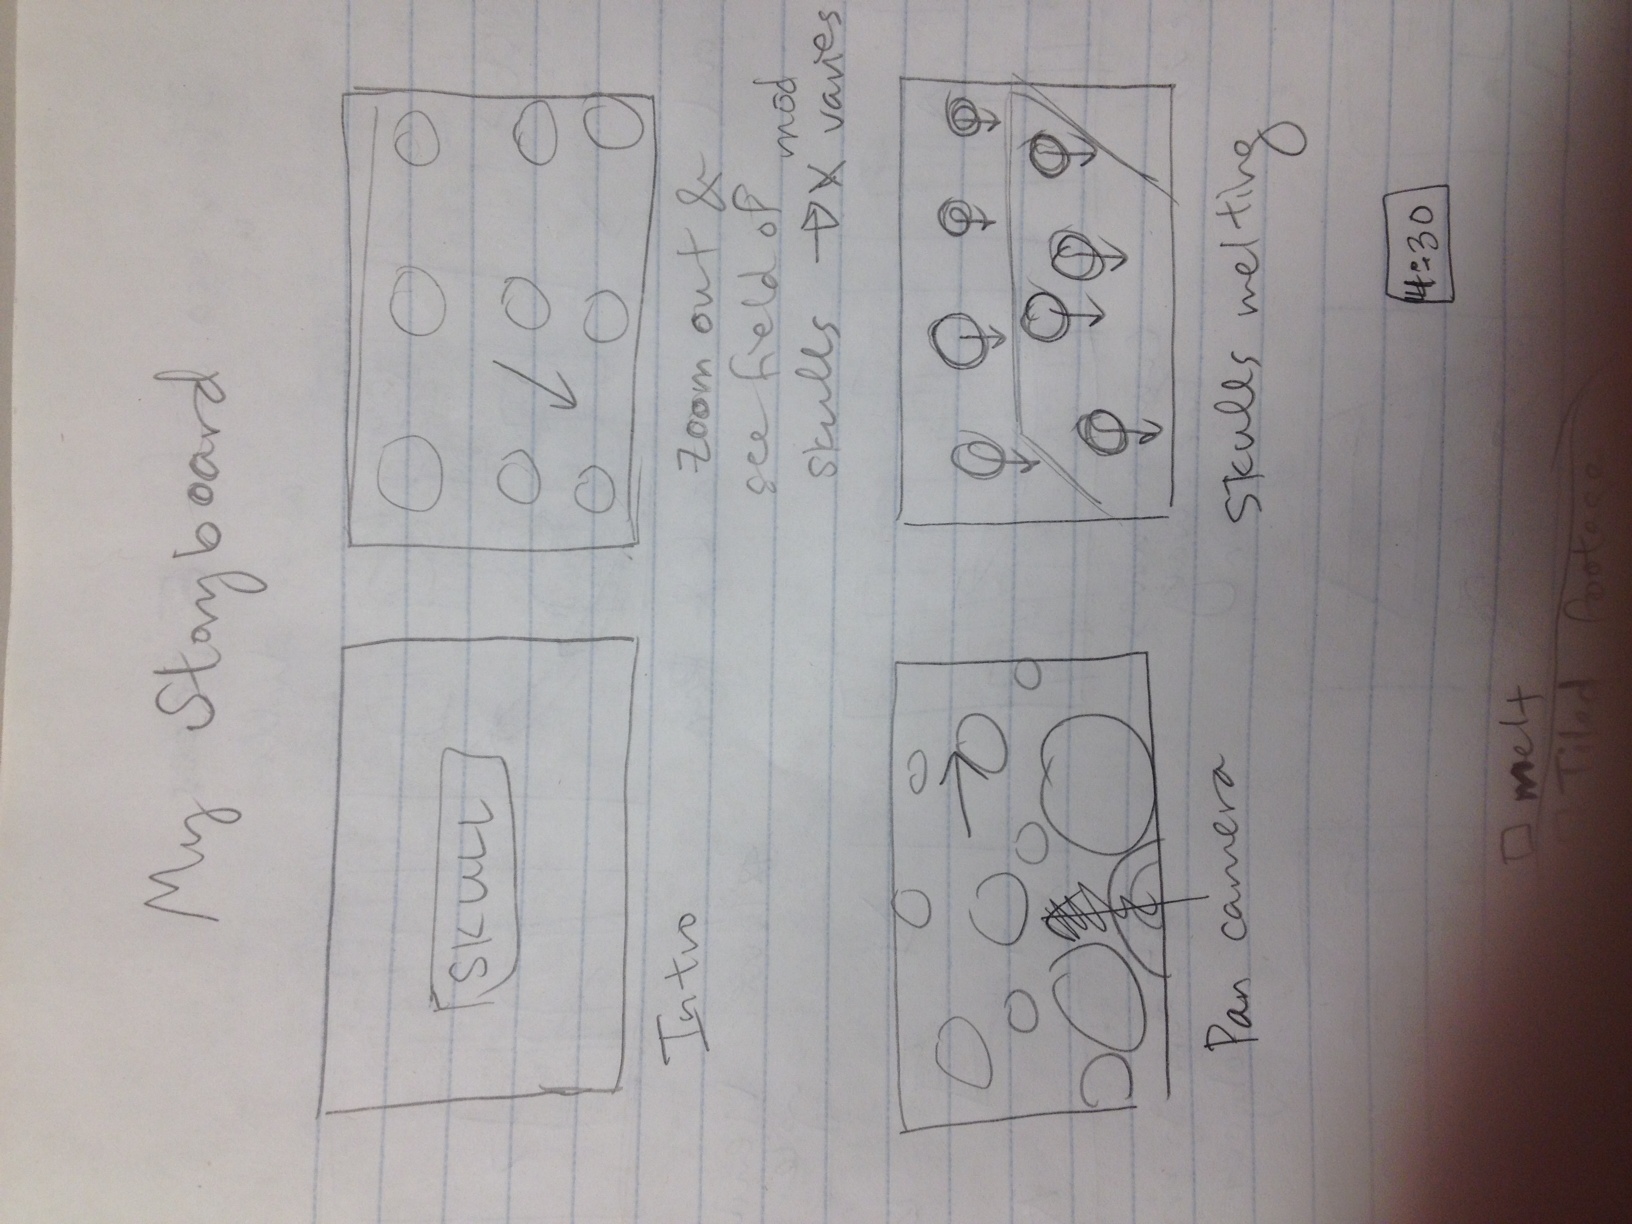 My Stoyboard
SKULL
Intro
Zoom out &
see field of
skulls → X mod varies
Pan camera
Skulls melting
4:30
melt
Tiled footage